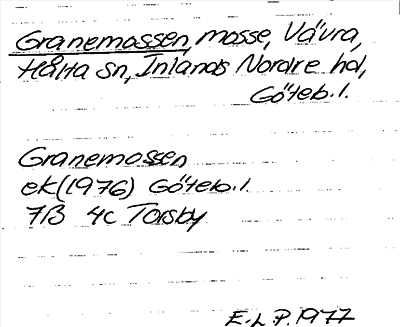 Granemossen, mosse, Vävra,
Hålta sn, Inlands Nordre hd,
Göteb. l.
Granemossen
ek (1976) Göteb. l.
7B 4c Torsby
E.L.P. 1977